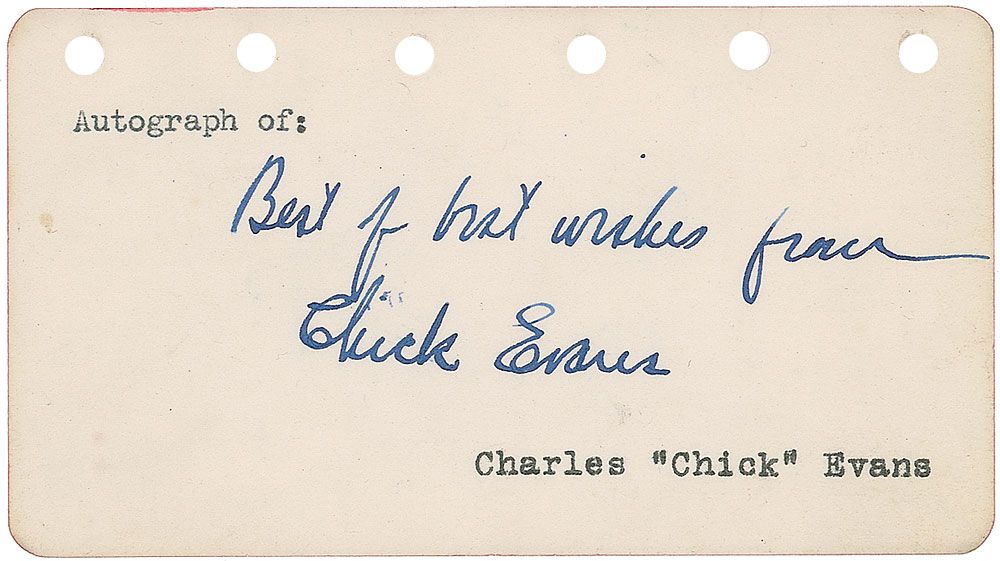 Autograph of:
Best of best wishes from
Chick Evans
Charles "Chick" Evans